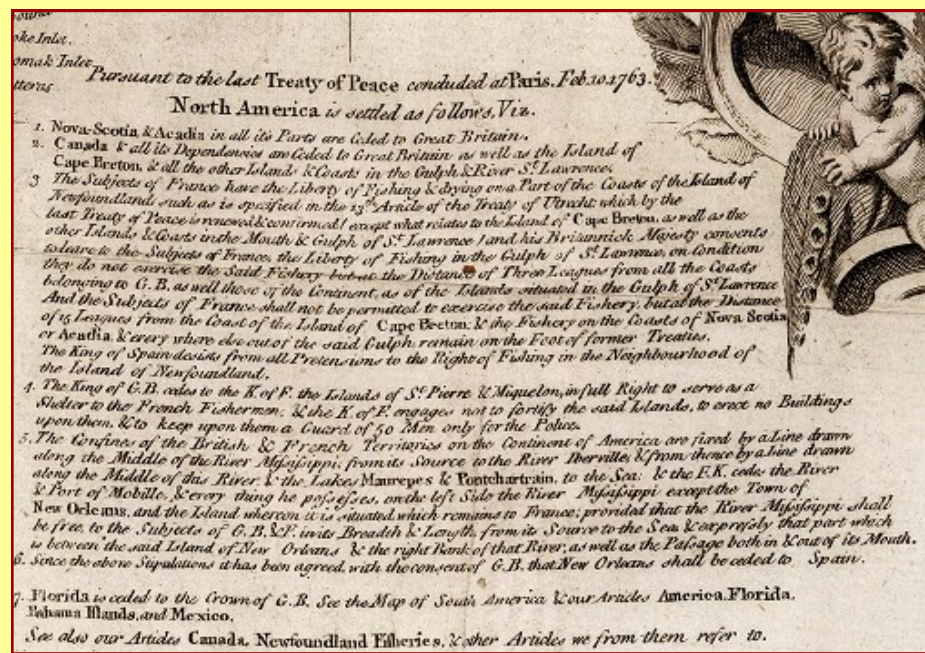 oke Inlet.
omak Inlet
tteras
Pursuant to the last Treaty of Peace concluded at Paris. Feb. 10. 1763.
North America is settled as follows, Viz.
1. Nova-Scotia & Acadia in all it's Parts are Ceded to Great Britain.
2. Canada & all its Dependencies are Ceded to Great Britain as well as the Island of
Cape Breton, & all the other Islands & Coasts in the Gulph & River St. Lawrence.
3 The Subjects of France have the Liberty of Fishing & drying on a Part of the Coasts of the Island of
Newfoundland, such as is specified in the 13th Article of the Treaty of Utrecht; which by the
last Treaty of Peace is renewed & confirmed / except what relates to the Island of Cape Breton, as well as the
other Islands & Coasts in the Mouth & Gulph of St. Lawrence / and his Britannick Majesty consents
to leave to the Subjects of France, the Liberty of Fishing in the Gulph of St. Lawrence, on Condition
they do not exercise the Said Fishery but at the Distance of Three Leagues from all the Coasts
belonging to G. B. as well those of the Continent, as of the Islands situated in the Gulph of St. Lawrence
And the Subjects of France shall not be permitted to exercise the said Fishery, but at the Distance
of 15 Leagues from the Coast of the Island of Cape Breton; & the Fishery on the Coasts of Nova Scotia
or Acadia, & every where else out of the said Gulph, remain on the Foot of former Treaties.
The King of Spain desists from all Pretensions to the Right of Fishing in the Neighbourhood of
the Island of Newfoundland.
4. The King of G. B. cedes to the K. of F. the Islands of St. Pierre & Miquelon, in full Right to serve as a
Shelter to the French Fishermen; & the K. of F. engages not to fortify the said Islands, to erect no Buildings
upon them, & to keep upon them a Guard of 50 Men only for the Police.
5. The Confines of the British & French Territories on the Continent of America are fixed by a Line drawn
along the Middle of the River Mississippi, from its Source to the River Iberville; & from thence by a Line drawn
along the Middle of this River, & the Lakes Maurepes & Pontchartrain, to the Sea: & the F. K. cedes the River
& Port of Mobille, & every thing he possesses, on the left Side the River Mississippi except the Town of
New Orleans, and the Island whereon it is situated, which remains to France; provided that the River Mississippi shall
be free, to the Subjects of G. B. & F. in its Breadth & Length, from its Source to the Sea, & expressly that part which
is between the said Island of New Orleans & the right Bank of that River, as well as the Passage both in & out of its Mouth.
6. Since the above Stipulations it has been agreed, with the consent of G. B. that New Orleans shall be ceded to Spain.
7. Florida is ceded to the Crown of G. B. See the Map of South America & our Articles America, Florida,
Bahama Islands, and Mexico.
See also our Articles Canada, Newfoundland Fisheries, & other Articles we from them refer to.